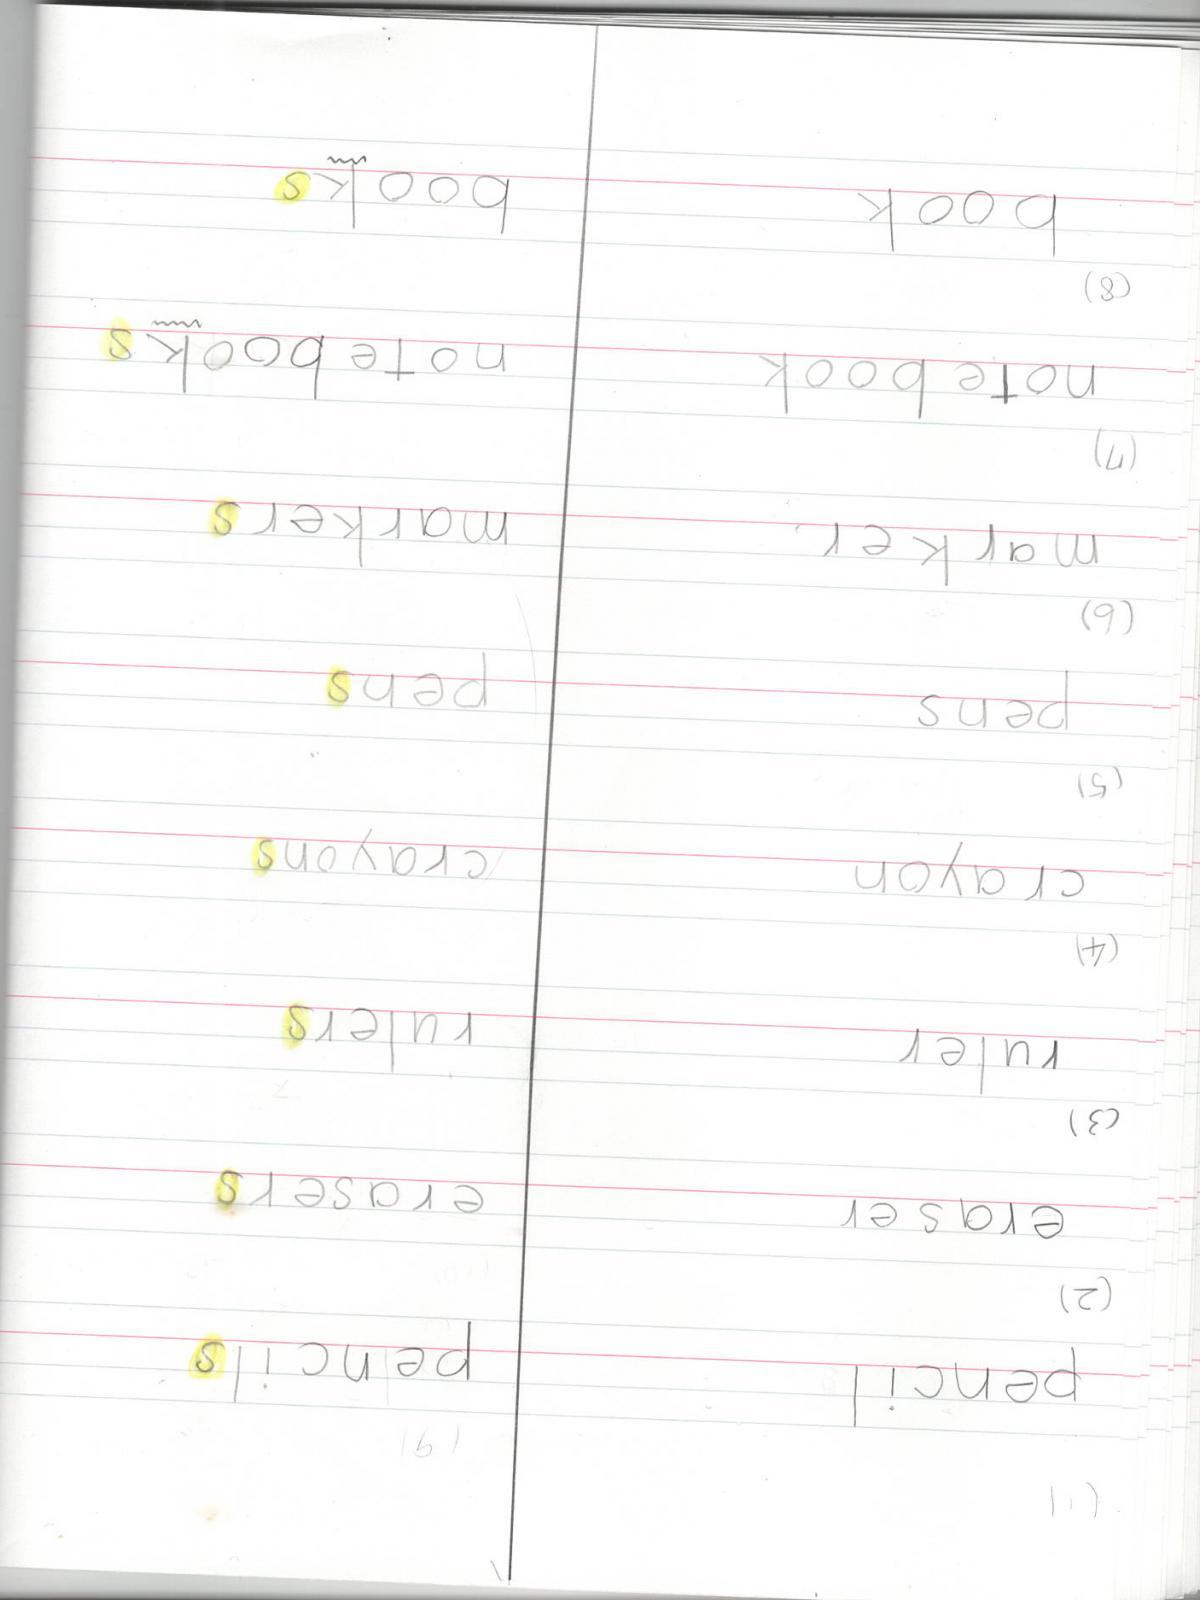 (1)
pencil
(2)
eraser
(3)
ruler
(4)
crayon
(5)
pens
(6)
marker
(7)
notebook
(8)
book
(9)
pencils
erasers
rulers
crayons
pens
markers
notebooks
books